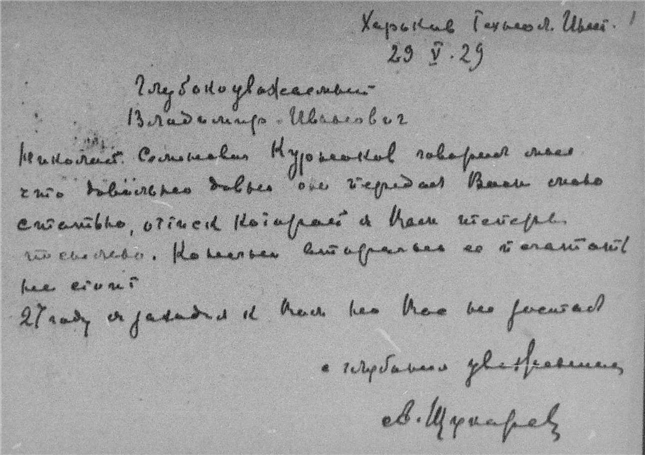 Харьков Технол. Инст. 1
29 V. 29
Глубокоуважаемый
Владимир Иванович
Николай Семенович Курнаков говорил мне
что довольно давно он передал Вам мою
статью, оттиск которой я Вам теперь
посылаю. Конечно вторично ее печатать
не стоит
27 году я заходил к Вам но Вас не застал
с глубоким уважением
А. Щукарев